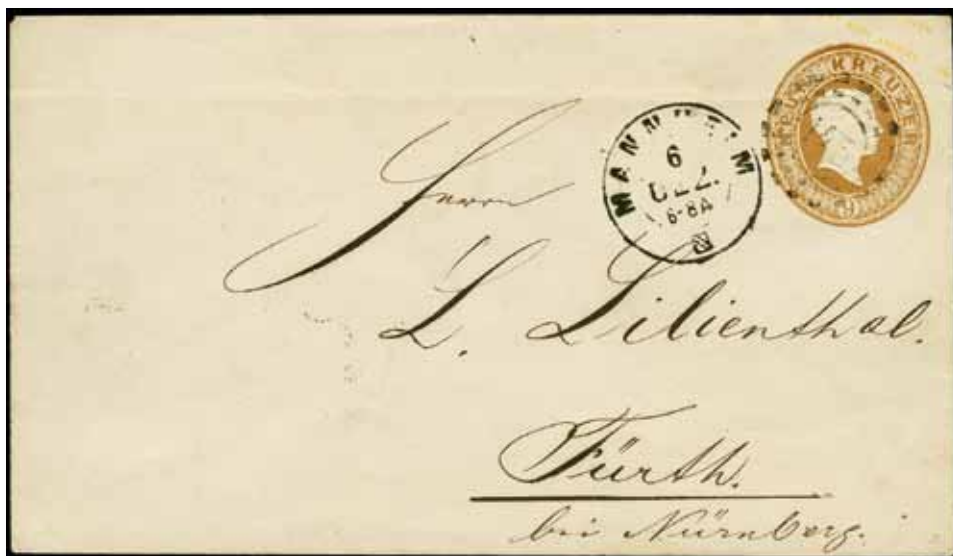 NEUN KREUZER
9
MANNHEIM
6
DEZ.
6-8A
Herrn
L. Lilienthal.
Fürth.
bei Nürnberg.